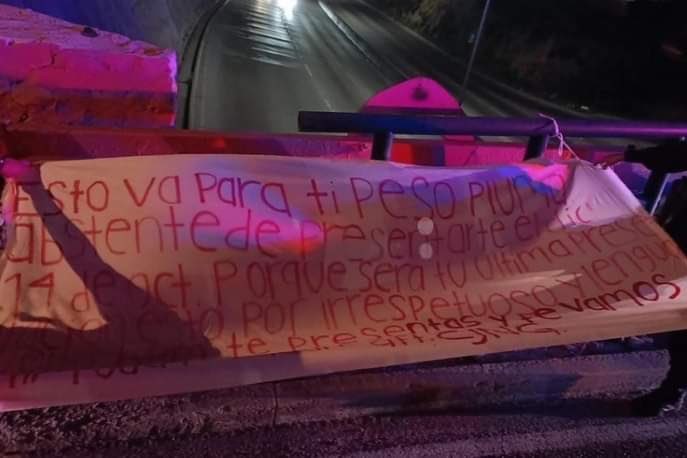 Esto va para ti Peso Pluma
abstente de presentarte el dic
14 de oct. Porque sera tu ultima Prese
esto Por irrespetuoso y lengu
te Presentas y te vamos